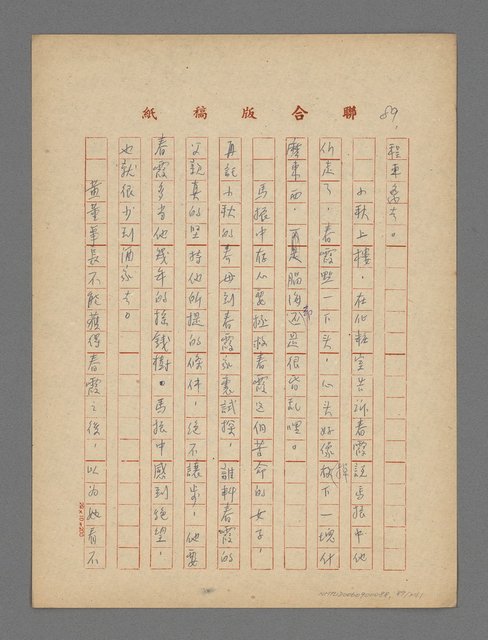 紙稿版合聯
89.
程車來去。
小秋上樓，在化粧室告訴春霞說馬振中他
們走了，春霞點一下頭，心頭好像放掉下一塊什
麼東西，可是腦海還是很昏亂哩。
馬振中存心要拯救春霞这個苦命的女子，
再託小秋的养母到春霞家裏試探，誰料春霞的
父親真的堅持他所提的條件，絕不讓步，他要
春霞多当他幾年的搖錢樹。馬振中感到絕望，
也就很少到酒家去。
黃董事長不能獲得春霞之後，以为她看不
20×10=200